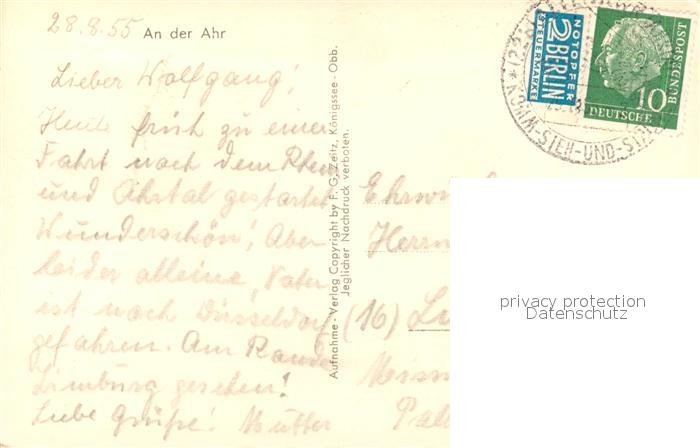 28.8.55 An der Ahr
Lieber Wolfgang!
Heute früh zu einer
Fahrt nach dem Rhein
und Ahrtal gestartet
Wunderschön! Aber
leider alleine, Vater
ist nach Düsseldorf
gefahren. Am Rande
Limburg gesehen!
Liebe Grüße! Mutter
Aufnahme - Verlag Copyright by F. G. Zeitz, Königssee - Obb.
Jeglicher Nachdruck verboten.
NOTOPFER
2 BERLIN
STEUERMARKE
10
DEUTSCHE
BUNDESPOST
(22
KOMM-SIEH-UND
Herrn
(16)
privacy protection
Datenschutz